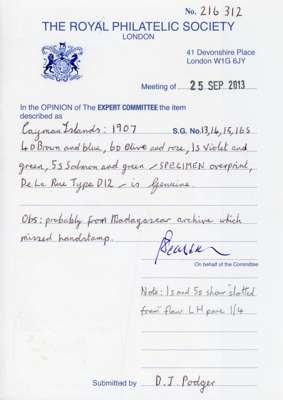 No. 216 312
THE ROYAL PHILATELIC SOCIETY
LONDON
41 Devonshire Place
London W1G 6JY
Meeting of 25 SEP. 2013
In the OPINION of The EXPERT COMMITTEE the item
described as
Cayman Islands: 1907 S.G. No. 13, 14, 15, 16S
4D Brown and blue, 6D Olive and rose, 1s Violet and
green, 5s Salmon and green - SPECIMEN overprint,
De La Rue Type D12 - is Genuine.
Obs: probably from Madagascar archive which
missed handstamp.
On behalf of the Committee
Note: 1s and 5s show slotted
frame flaw LH pane 1/4
Submitted by D. J. Podger